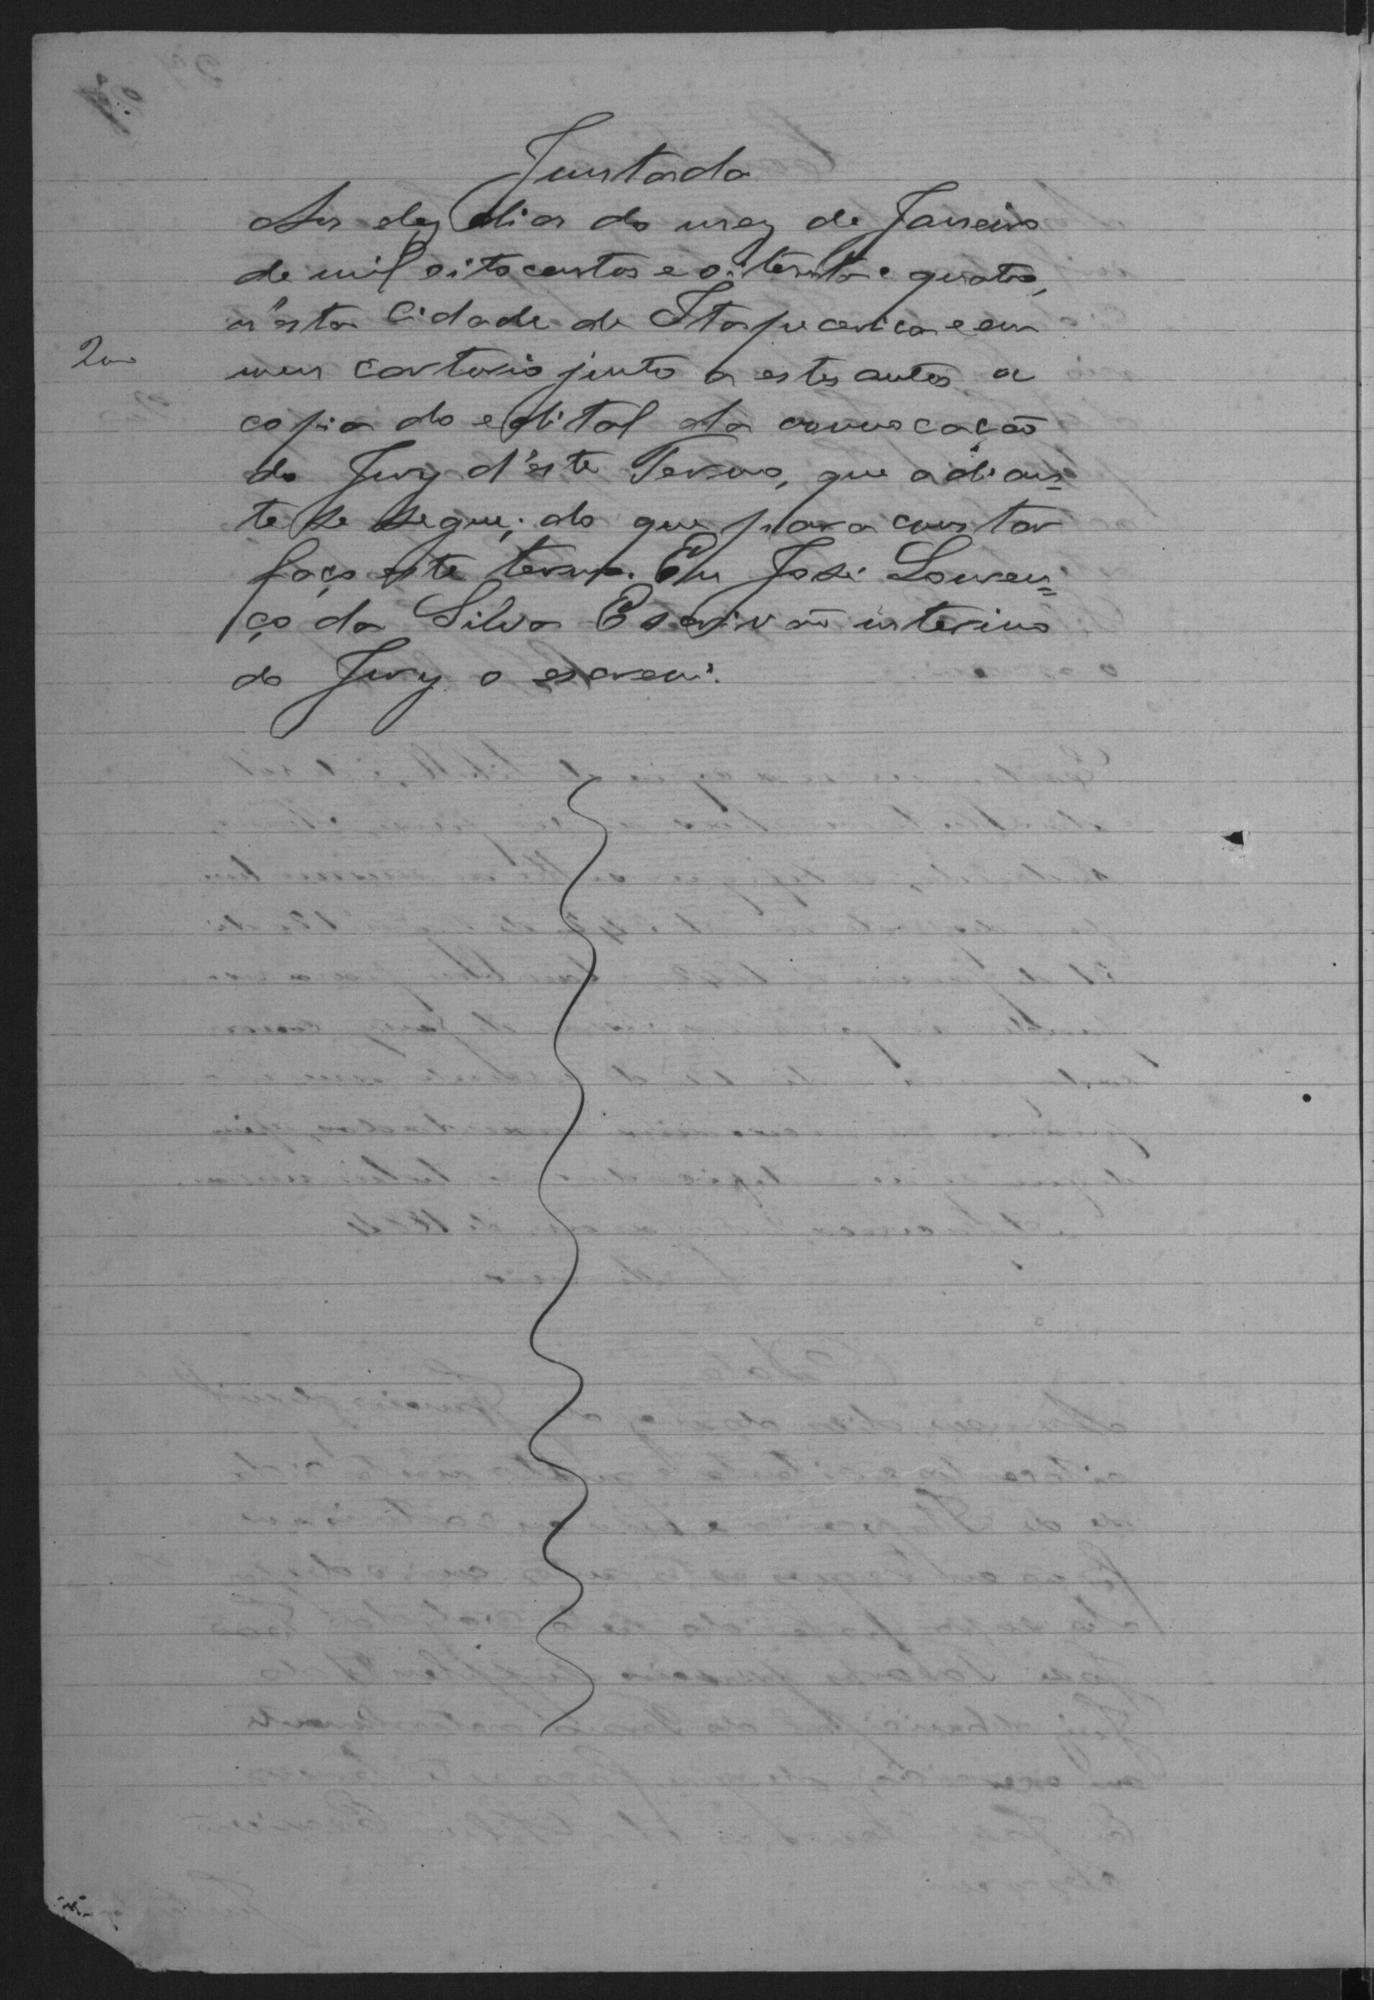 Juntada
Aos dez dias do mez de Janeiro
de mil oitocentos e oitenta e quatro,
n'esta Cidade de Itapecerica e em
meu cartorio junto a estes autos a
copia do edital da convocação
do Jury d'este Termo, que adian=
te se segue; do que para constar
faço este termo. Eu José Louren=
ço da Silva Escrivão interino
do Jury o escrevi.
200